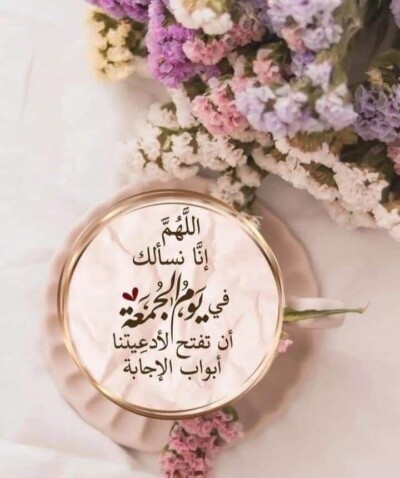 اللَّهُمَّ
إنَّا نسألك
في يَومُ الجُمعَة
أن تفتح لأدعِيتنا
أبواب الإجابة